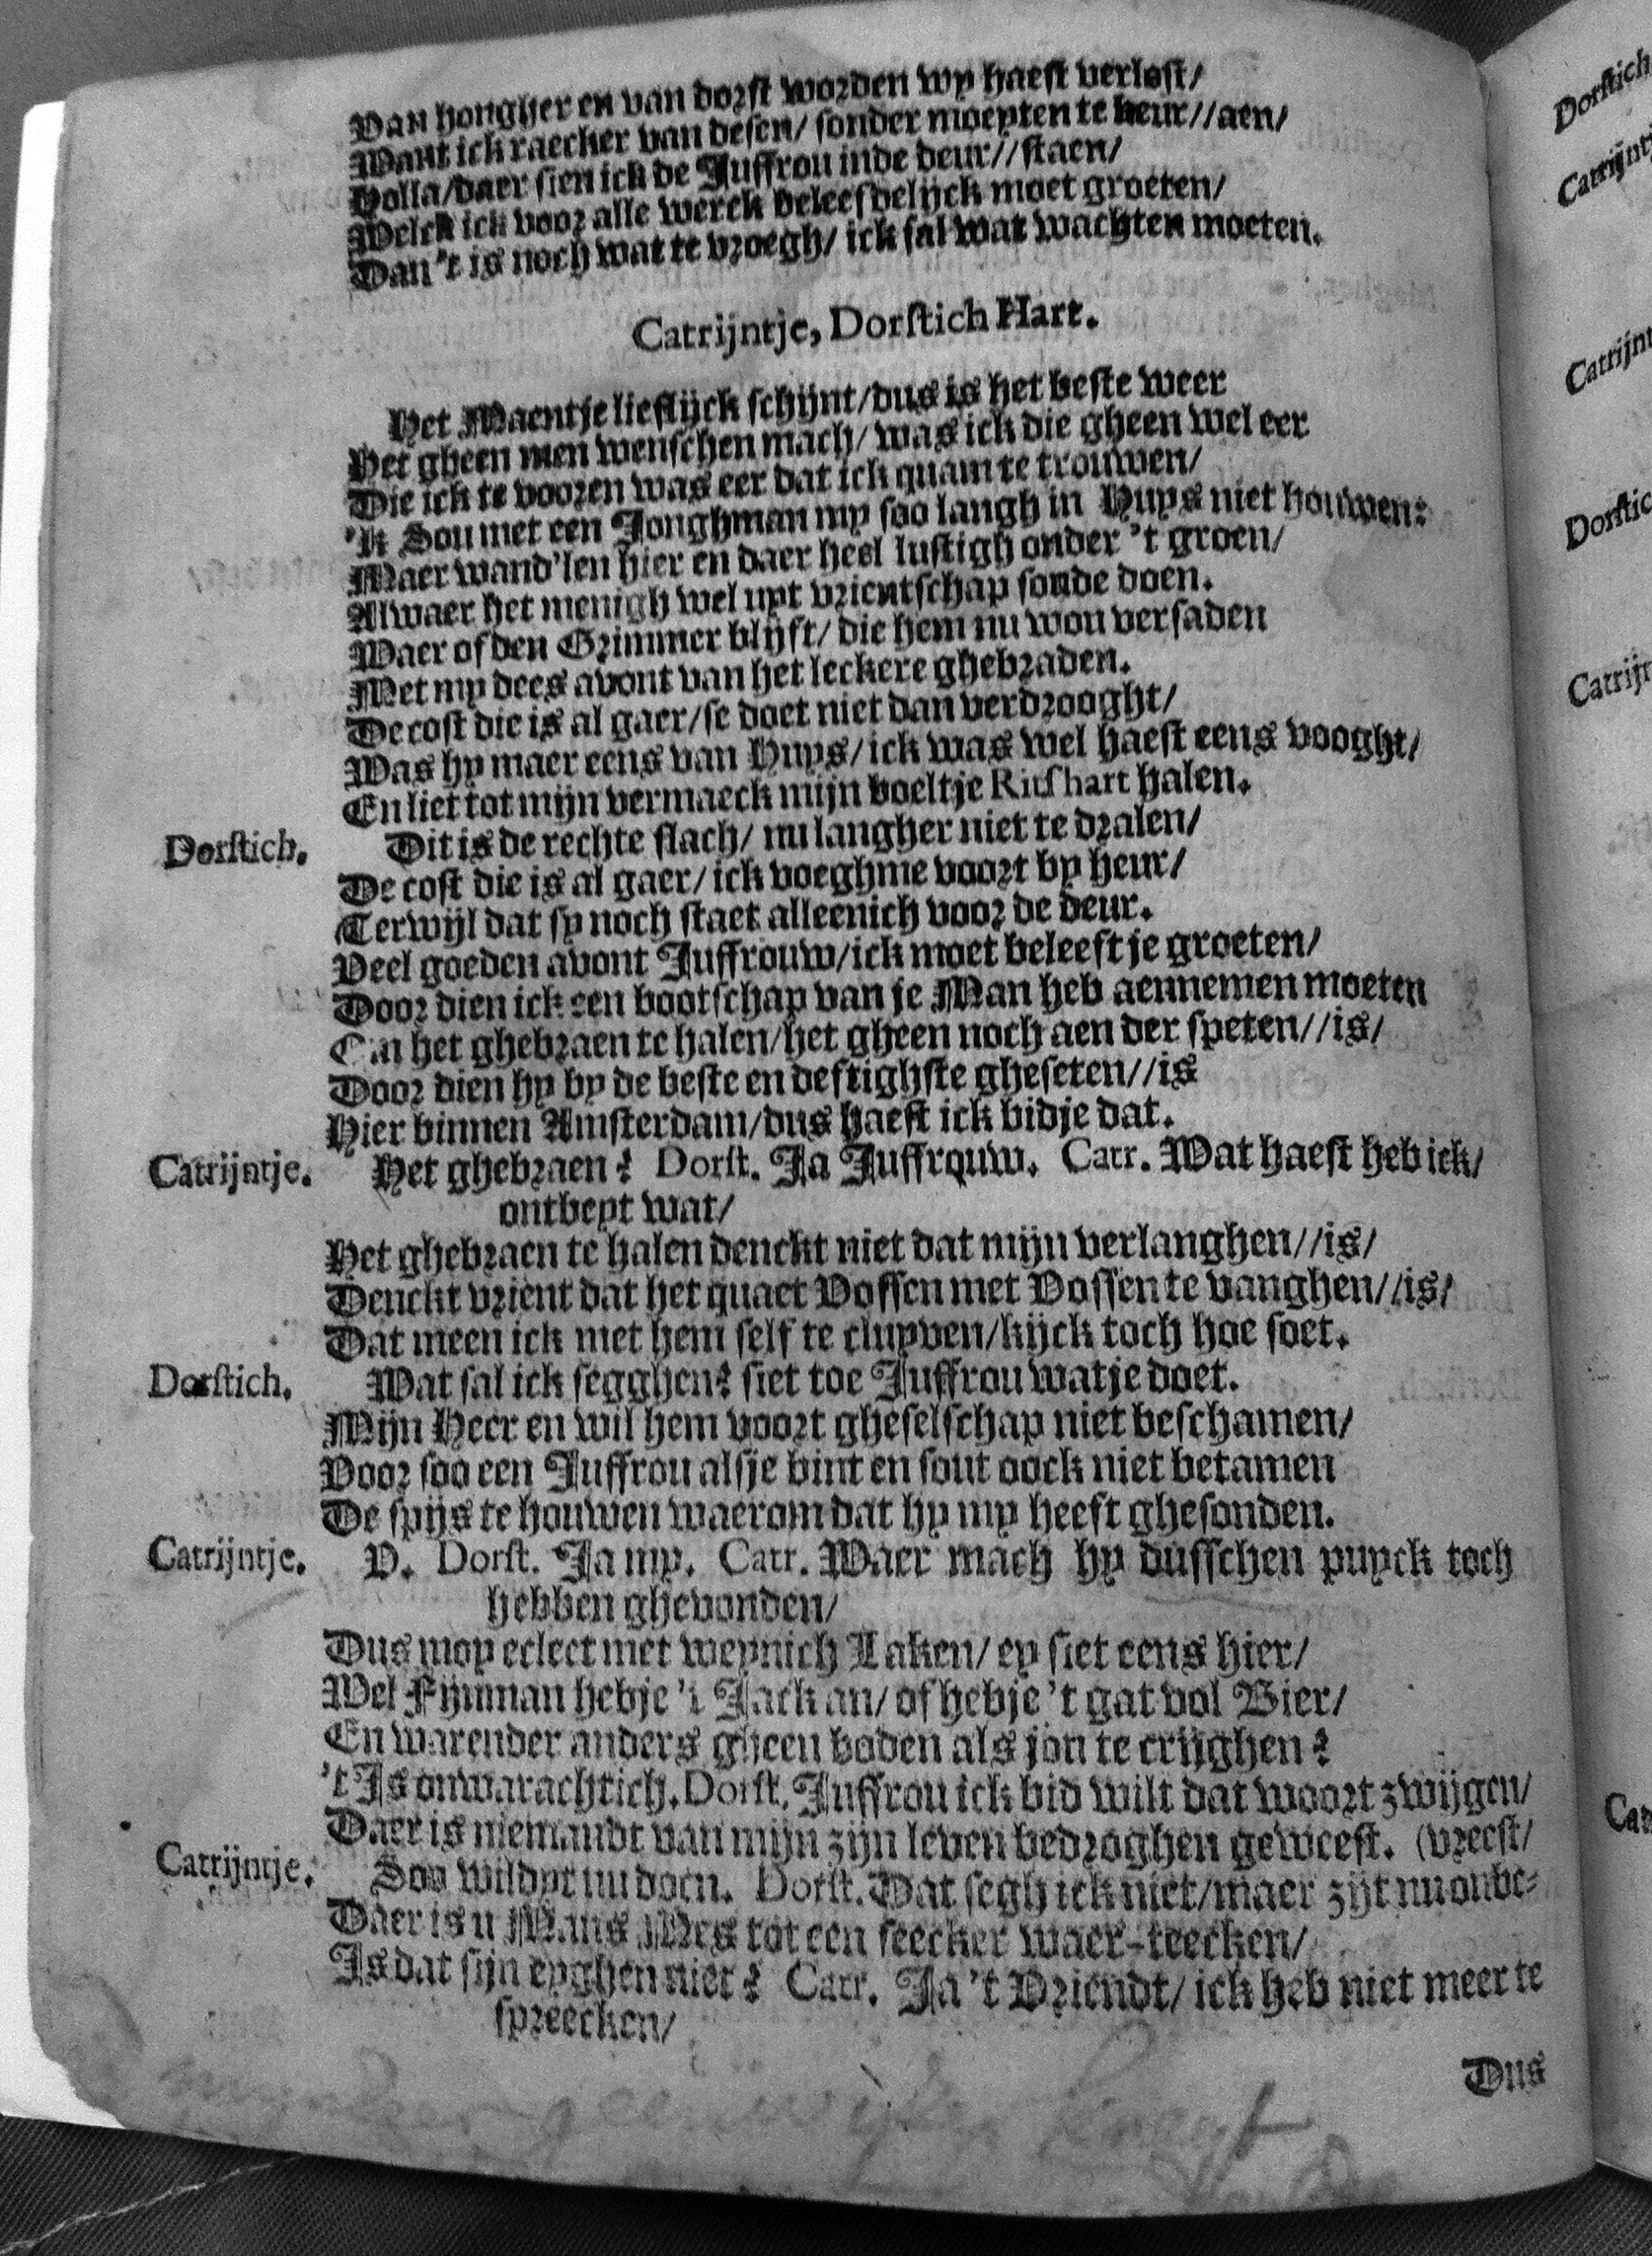 Van hongher en van dorst worden wy haest verlost/
Want ick raecker van desen/ sonder moeyten te keur//aen/
Holla/daer sien ick de Juffrou inde deur//staen/
Welck ick voor alle werck beleefdelijck moet groeten/
Dan 't is noch wat te vroegh/ ick sal wat wachten moeten.
Catrijntje, Dorstich Hart.
Het Maentje lieflijck schijnt/dus is het beste weer
Het gheen men wenschen mach/ was ick die gheen wel eer
Die ick te vooren was eer dat ick quam te trouwen/
'k Sou met een Jonghman my soo langh in Huys niet houwen:
Maer wand'len hier en daer heel lustigh onder 't groen/
Alwaer het menigh wel uyt vrientschap soude doen.
Waer of den Grimmer blijft/ die hem nu wou versaden
Met my dees avont van het leckere ghebraden.
De cost die is al gaer/se doet niet dan verdrooght/
Was hy maer eens van Huys/ick was wel haest eens vooght/
En liet tot mijn vermaeck mijn boeltje Ritshart halen.
Dorstich. Dit is de rechte slach/ nu langher niet te dralen/
De cost die is al gaer/ ick voeghme voort by heur/
Terwijl dat sy noch staet alleenich voor de deur.
Veel goeden avont Juffrouw/ick moet beleeft je groeten/
Door dien ick een bootschap van je Man heb aennemen moeten
Om het ghebraen te halen/het gheen noch aen der speten//is/
Door dien hy by de beste en deftighste gheseten//is
Hier binnen Amsterdam/dus haest ick bidje dat.
Catrijntje. Het ghebraen? Dorst. Ja Juffrouw. Catr. Wat haest heb ick/
ontbeyt wat/
Het ghebraen te halen denckt niet dat mijn verlanghen//is/
Denckt vrient dat het quaet Vossen met Vossen te vanghen//is/
Dat meen ick met hem self te cluyven/kijck toch hoe soet.
Dorstich. Wat sal ick segghen? siet toe Juffrou watje doet.
Mijn Heer en wil hem voort gheselschap niet beschamen/
Voor soo een Juffrou alsje bint en sout oock niet betamen
De spijs te houwen waerom dat hy my heeft ghesonden.
Catrijntje. V. Dorst. Ja my. Catr. Waer mach hy dusschen puyck toch
hebben ghevonden/
Dus moy ecleet met weynich Laken/ ey siet eens hier/
Wel Fijnman hebje 't Jack an/ of hebje 't gat vol Bier/
En warender anders gheen boden als jou te crijghen?
't Is onwarachtich. Dorst. Juffrou ick bid wilt dat woort zwijgen/
Daer is niemandt van mijn zijn leven bedroghen geweest. (vreest/
Catrijntje. Soo wildyt nu doen. Dorst. Wat segh ick niet/maer zijt nu onbe-
Daer is u Mans Mes tot een seecker waer-teecken/
Is dat sijn eyghen niet? Catr. Ja 't Vriendt/ ick heb niet meer te
spreecken/
Dus